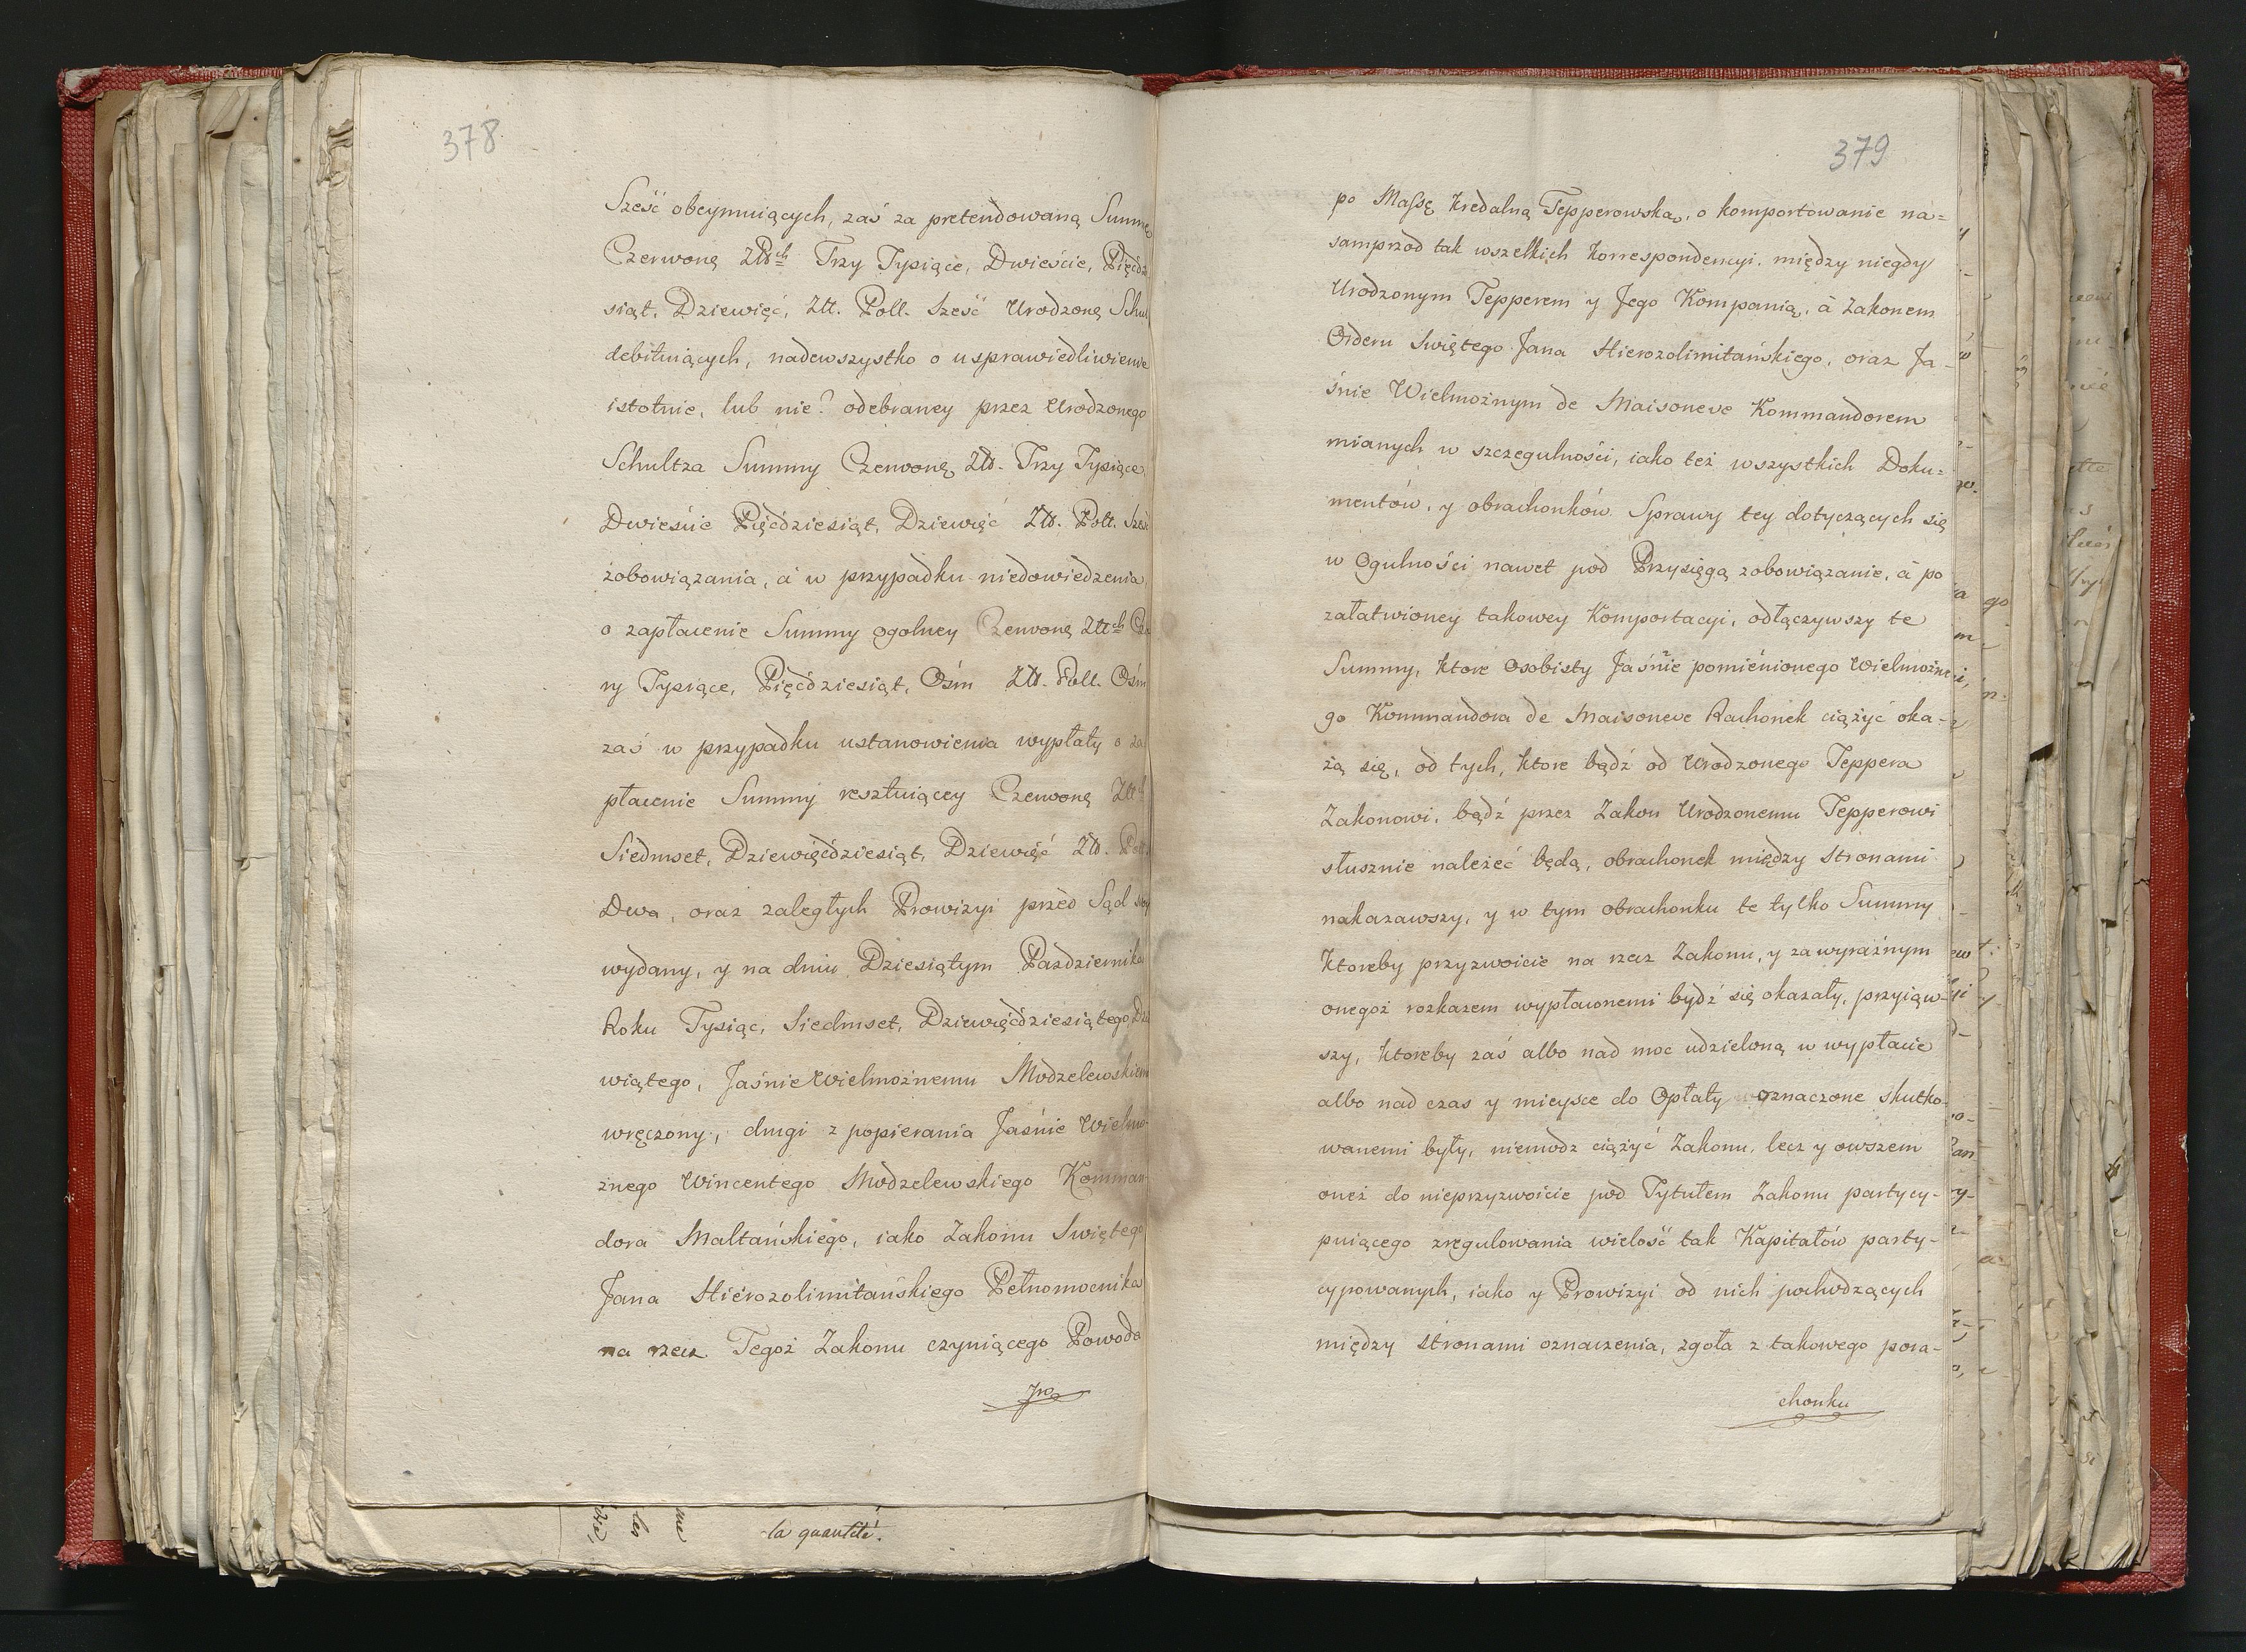 378
Sześć obeymuiących, zaś za pretendowaną Summę
Czerwonę Złłch Trzy Tysiące, Dwieście, Pięćdz
siąt, Dziewięć, Złł. Poll. Sześć Urodzonę Schul
debituiących, nadewszystko o usprawiedliwienie
istotnie, lub nie? odebraney przez Urodzonego
Schultza Summy Czerwonę Złł. Trzy Tysiące
Dwieście Pięćdziesiąt, Dziewięć Złł. Poll. Sześć
zobowiązania, á w przypadku niedowiedzenia
o zapłacenie Summy ogolney Czerwonę Złłch Czte
ry Tysiące, Pięćdziesiąt, Ośm Złł. Poll. Ośm
zaś w przypadku ustanowienia wypłaty o za
płacenie Summy resztuiącey Czerwonę Złłch
Siedmset, Dziewięćdziesiąt, Dziewięć Złł. Poll.
Dwa, oraz zaległych Prowizyi przed Sąd
wydany, y na dniu Dziesiątym Pazdziernika
Roku Tysiąc, Siedmset, Dziewięćdziesiątego Dzie
wiątego, Jaśnie Wielmożnemu Modzelewskiemu
wręczony, drugi z popierania Jaśnie Wielmo-
żnego Wincentego Modzelewskiego Komman-
dora Maltańskiego, iako Zakonu Swiętego
Jana Hierozolimitańskiego Pełnomocnika
na rzecz Tegoż Zakonu czyniącego Powoda
po
la quantité.
379
po Massę Kredalną Tepperowską, o komportowanie na=
samprzod tak wszelkich Korrespondencyi, między niegdy
Urodzonym Tepperem y Jego Kompanią, á Zakonem
Orderu Swiętego Jana Hierozolimitańskiego, oraz Ja-
śnie Wielmożnym de Maisoneve Kommandorem
mianych w szczegulności, iako też wszystkich Doku=
mentów, y obrachonków Sprawy tey dotyczących się
w Ogulności nawet pod Przysięgą zobowiązanie, á po
załatwioney takowey Komportacyi, odłączywszy te
Summy, ktore osobisty Jaśnie pomienionego Wielmożne
go Kommandora de Maisoneve Rachonek ciążyć oka-
żą się, od tych, ktore bądź od Urodzonego Teppera
Zakonowi, bądź przez Zakon Urodzonemu Tepperowi
słusznie należeć będą, obrachonek między Stronami
nakazawszy, y w tym obrachonku te tylko Summy
ktoreby przyzwoicie na rzecz Zakonu, y za wyraźnym
onegoż rozkazem wypłaconemi bydź się okazały, przyiąw-
szy, ktoreby zaś albo nad moc udzieloną w wypłacie
albo nad czas y mieysce do Opłaty oznaczone skutko-
wanemi były, niemodz ciążyć Zakonu, lecz y owszem
oneż do nieprzyzwoicie pod Tytułem Zakonu partycy-
puiącego zregulowania wielość tak Kapitałów party-
cypowanych, iako y Prowizyi od nich pochodzących
między Stronami oznaczenia, zgoła z takowego pora-
chonku